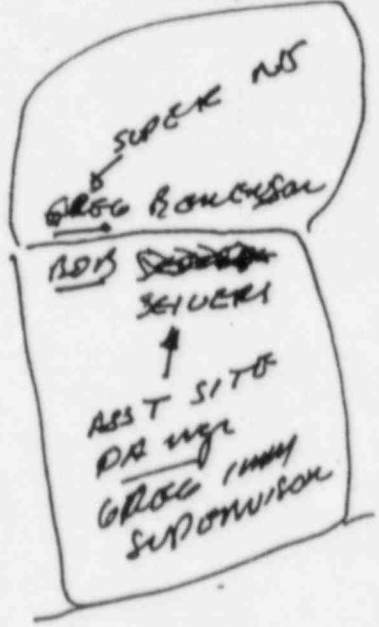 SUPER NS
GREG
BOB
SEIVERS
ASST SITE
QA mgr
GREG imm
SUPERVISOR